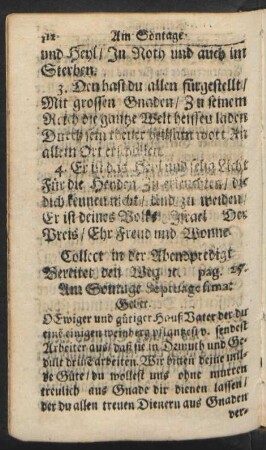 312 Am Sontage
und Heyl / In Noth und auch im
Sterben.
3. Den hast du allen fürgestellt /
Mit grossen Gnaden / Zu seinem
Reich die gantze Welt heissen laden
Durch sein theuer heilsam wort An
allem Ort erschollen.
4. Er ist das Heyl und selig Licht
Für die Heyden Zu erleuchten / die
dich kennen nicht / Und zu weiden /
Er ist deines Volks Israel Der
Preis / Ehr Freud und Wonne.
Collect in der Abendpredigt
Bereitet den Weg ꝛc. pag. 25.
Am Sontage Septuagesimæ
Gebet.
O Ewiger und gütiger Hauß Vater der du
einen weinberg pflantzest v. sendest
Arbeiter aus / daß sie in Demuth und Ge-
dult drinn arbeiten. Wir bitten deine mil-
de Güte / du wollest uns ohne murren
treulich aus Gnade dir dienen lassen /
der du allen treuen Dienern aus Gnaden
ver-